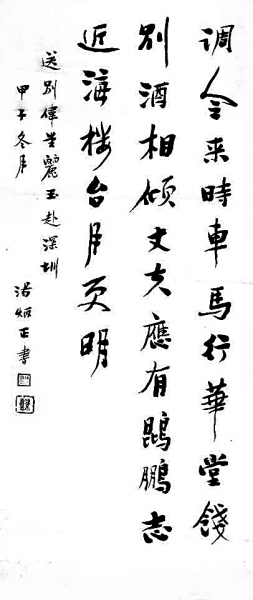 调令来時車馬行華堂餞
别酒相倾丈夫應有鵾鵬志
近海楼台月更明
送别偉生麗玉赴深圳
甲子冬月
湯炳正書